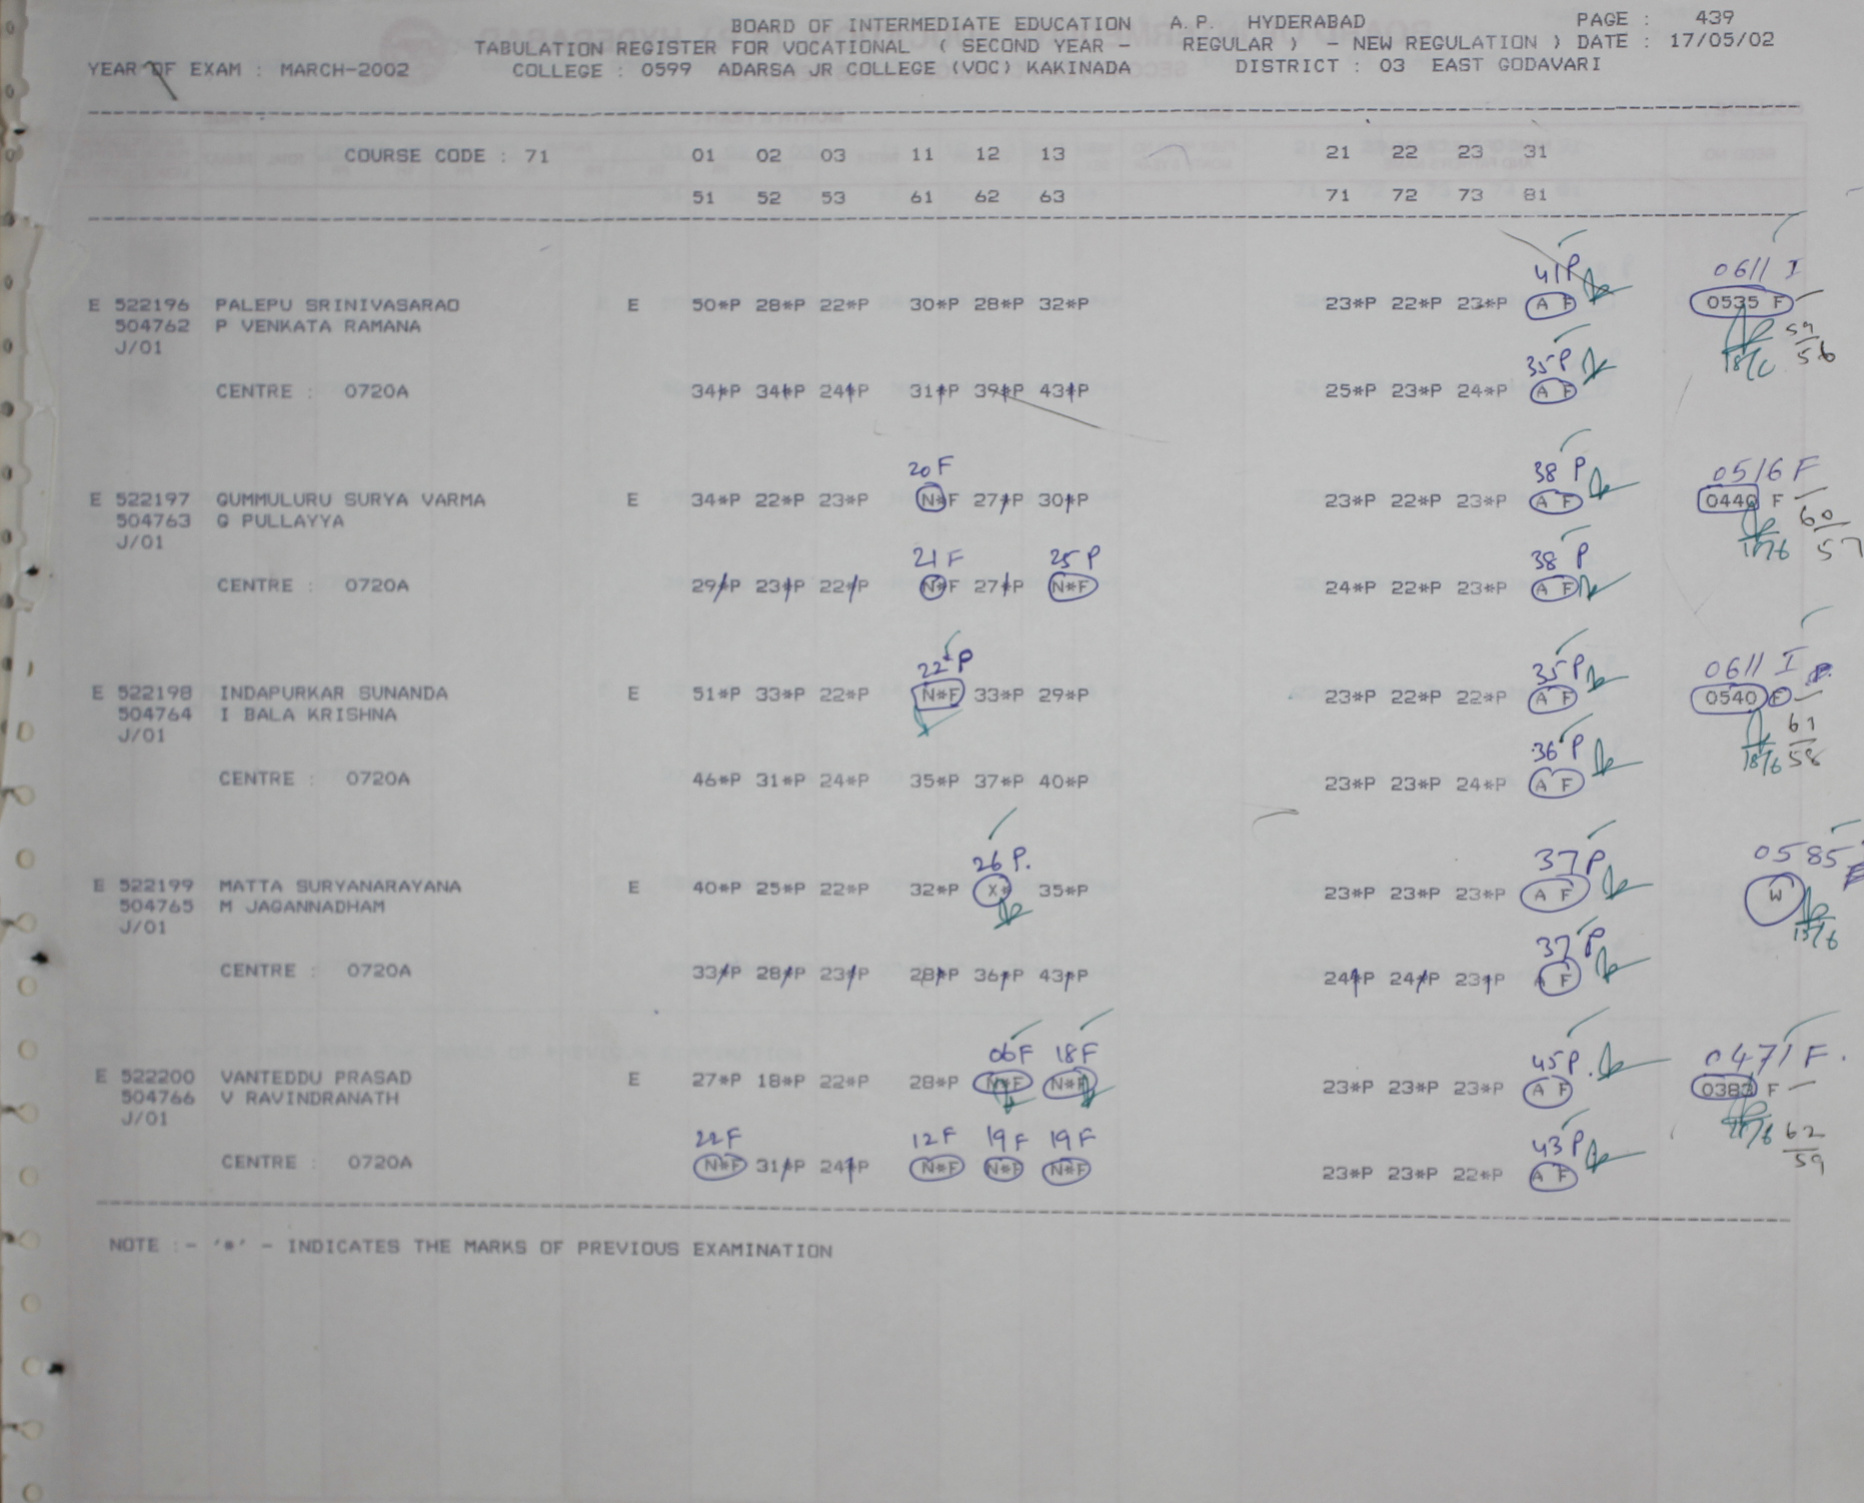 BOARD OF INTERMEDIATE EDUCATION A.P. HYDERABAD PAGE : 439
TABULATION REGISTER FOR VOCATIONAL ( SECOND YEAR - REGULAR ) - NEW REGULATION ) DATE : 17/05/02
YEAR OF EXAM : MARCH-2002 COLLEGE : 0599 ADARSA JR COLLEGE (VOC) KAKINADA DISTRICT : 03 EAST GODAVARI
COURSE CODE : 71 01 02 03 11 12 13 21 22 23 31
51 52 53 61 62 63 71 72 73 81
41P 0611 I
E 522196 PALEPU SRINIVASARAO E 50*P 28*P 22*P 30*P 28*P 32*P 23*P 22*P 23*P A F 0535 F
504762 P VENKATA RAMANA 59
J/01 35P 18/6 56
CENTRE : 0720A 34*P 34*P 24*P 31*P 39*P 43*P 25*P 23*P 24*P A F
20F 38 P 0516 F
E 522197 GUMMULURU SURYA VARMA E 34*P 22*P 23*P N*F 27*P 30*P 23*P 22*P 23*P A F 0440 F
504763 G PULLAYYA 60
J/01 18/6 57
21F 25 P 38 P
CENTRE : 0720A 29*P 23*P 22*P N*F 27*P N*F 24*P 22*P 23*P A F
22*P 35P 0611 I
E 522198 INDAPURKAR SUNANDA E 51*P 33*P 22*P N*F 33*P 29*P 23*P 22*P 22*P A F 0540 F
504764 I BALA KRISHNA 61
J/01 36 P 18/6 58
CENTRE : 0720A 46*P 31*P 24*P 35*P 37*P 40*P 23*P 23*P 24*P A F
26 P. 37P 0585
E 522199 MATTA SURYANARAYANA E 40*P 25*P 22*P 32*P X* 35*P 23*P 23*P 23*P A F W
504765 M JAGANNADHAM
J/01 37 P
CENTRE : 0720A 33*P 28*P 23*P 28*P 36*P 43*P 24*P 24*P 23*P F
06F 18F 45P. 0471 F.
E 522200 VANTEDDU PRASAD E 27*P 18*P 22*P 28*P N*F N*F 23*P 23*P 23*P A F 0383 F
504766 V RAVINDRANATH
J/01 62
22F 12F 19F 19F 43P 59
CENTRE : 0720A N*F 31*P 24*P N*F N*F N*F 23*P 23*P 22*P A F
NOTE :- '*' - INDICATES THE MARKS OF PREVIOUS EXAMINATION